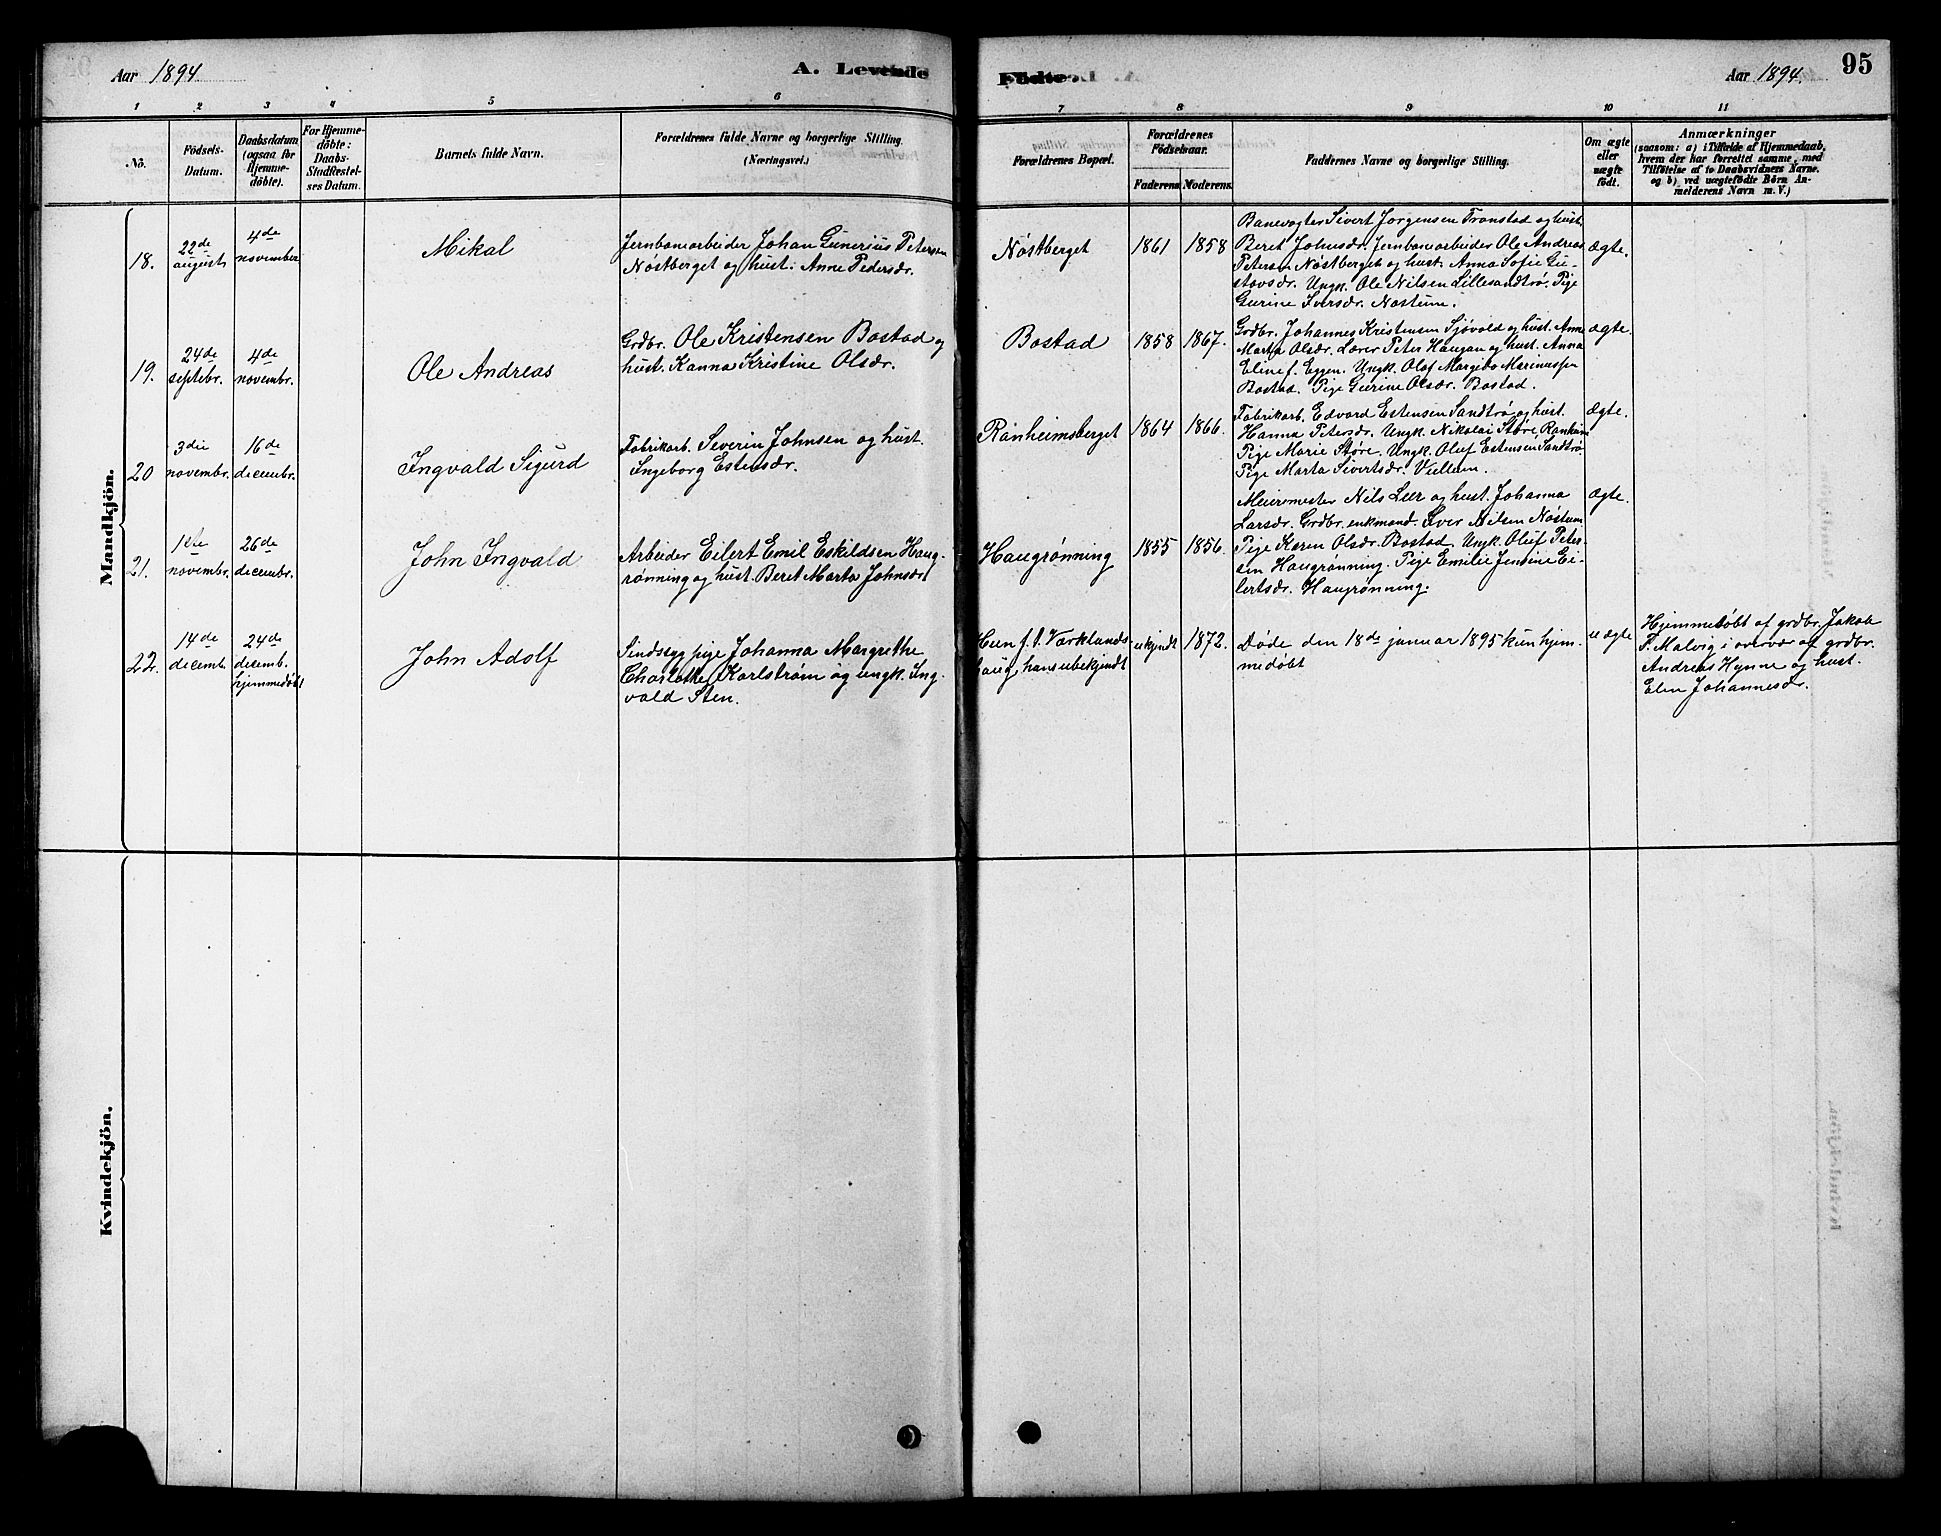 Aar 1894.
A. Levende
Födte.
Aar 1894.
95
1
2
3
4
5
6
7
8
9
10
11
No.
Födsels-
Datum.
Daabsdatum
(ogsaa for
Hjemme-
döbte).
For Hjemme-
döbte:
Daabs-
Stadfæstel-
ses Datum.
Barnets fulde Navn.
Forældrenes fulde Navne og borgerlige Stilling
(Næringsvei.)
Forældrenes Bopæl.
Forældrenes
Födselsaar.
Faderens
Moderens
Faddernes Navne og borgerlige Stilling.
Om ægte
eller
uægte
födt.
Anmærkninger
(saasom: a) i Tilfælde af Hjemmedaab,
hvem der har forrettet samme, med
Tilföielse af to Daabsvidners Navne.
og b) ved uægtefödte Börn An-
melderens Navn m. V.)
Mandkjön.
18.
22de
august
4de
november
Mikal
Jernbanearbeider Johan Gunerius Petersen
Nøstberget og hust. Anne Pedersdr.
Nøstberget
1861
1858
Banevogter Sivert Jorgensen Tronstad og hust.
Beret Johnsdr. Jernbanearbeider Ole Andreas
Petersen Nøstberget og hust. Anna Sofie Gu-
stavsdr. Ungk. Ole Nilsen Lillesandtrø. Pige
Gurine Iversdr. Nøstum.
ægte.
19.
24de
septebr.
4de
novembr.
Ole Andreas
Grdbr. Ole Kristensen Bostad og
hust. Hanna Kristine Olsdr.
Bostad
1858
1867.
Grdbr. Johannes Kristensen Sjøvold og hust. Anne
Marta Olsdr. Lærer Peter Haugan og hust. Anna
Eline f. Eggen. Ungk. Olaf Marinussen
Bostad. Pige Gurine Olsdr. Bostad.
ægte.
20
3die
novembr.
16de
decembr.
Ingvald Sigurd
Fabrikarb. Severin Johnsen og hust.
Ingeborg Estensdr.
Ranheimsberget
1864
1866.
Fabrikarb. Edvard Estensen Sandtrø og hust.
Hanna Petersdr. Ungk. Nikolai Støre, Ranheim
Pige Marie Støre. Ungk. Oluf Estensen Sandtrø
Pige Marta Sivertsdr. Vullum.
ægte.
21.
1ste
novembr.
26de
decembr.
John Ingvald
Arbeider Eilert Emil Eskildsen Haug-
rønning og hust. Beret Marta Johnsdr.
Haugrønning
1855
1856.
Meiermester Nils Leer og hust. Johanna
Larsdr. Grdbr. enkmand. Iver Nilsen Nøstum
Pige Karen Olsdr. Bostad. Ungk. Oluf Peter-
sen Haugrønning. Pige Emilie Jensine Ei-
lertsdr. Haugrønning.
ægte.
22.
14de
decemb.
24de
decemb.
hjemmedøbt
John Adolf
Sindssyg pige Johanna Margrethe
Charlotte Karlstrøm og ungk. Ing-
vald Sten.
Hun f. t. Værklands-
haug, hans ubekjendt
ukjendt
1872.
Døde den 18de januar 1895 kun hjem-
medøbt
uægte
Hjemmedøbt af grdbr. Jakob
F. Malvig i overvær af grdbr.
Andreas Hynne og hust.
Elen Johannesdr.
Kvindekjön.